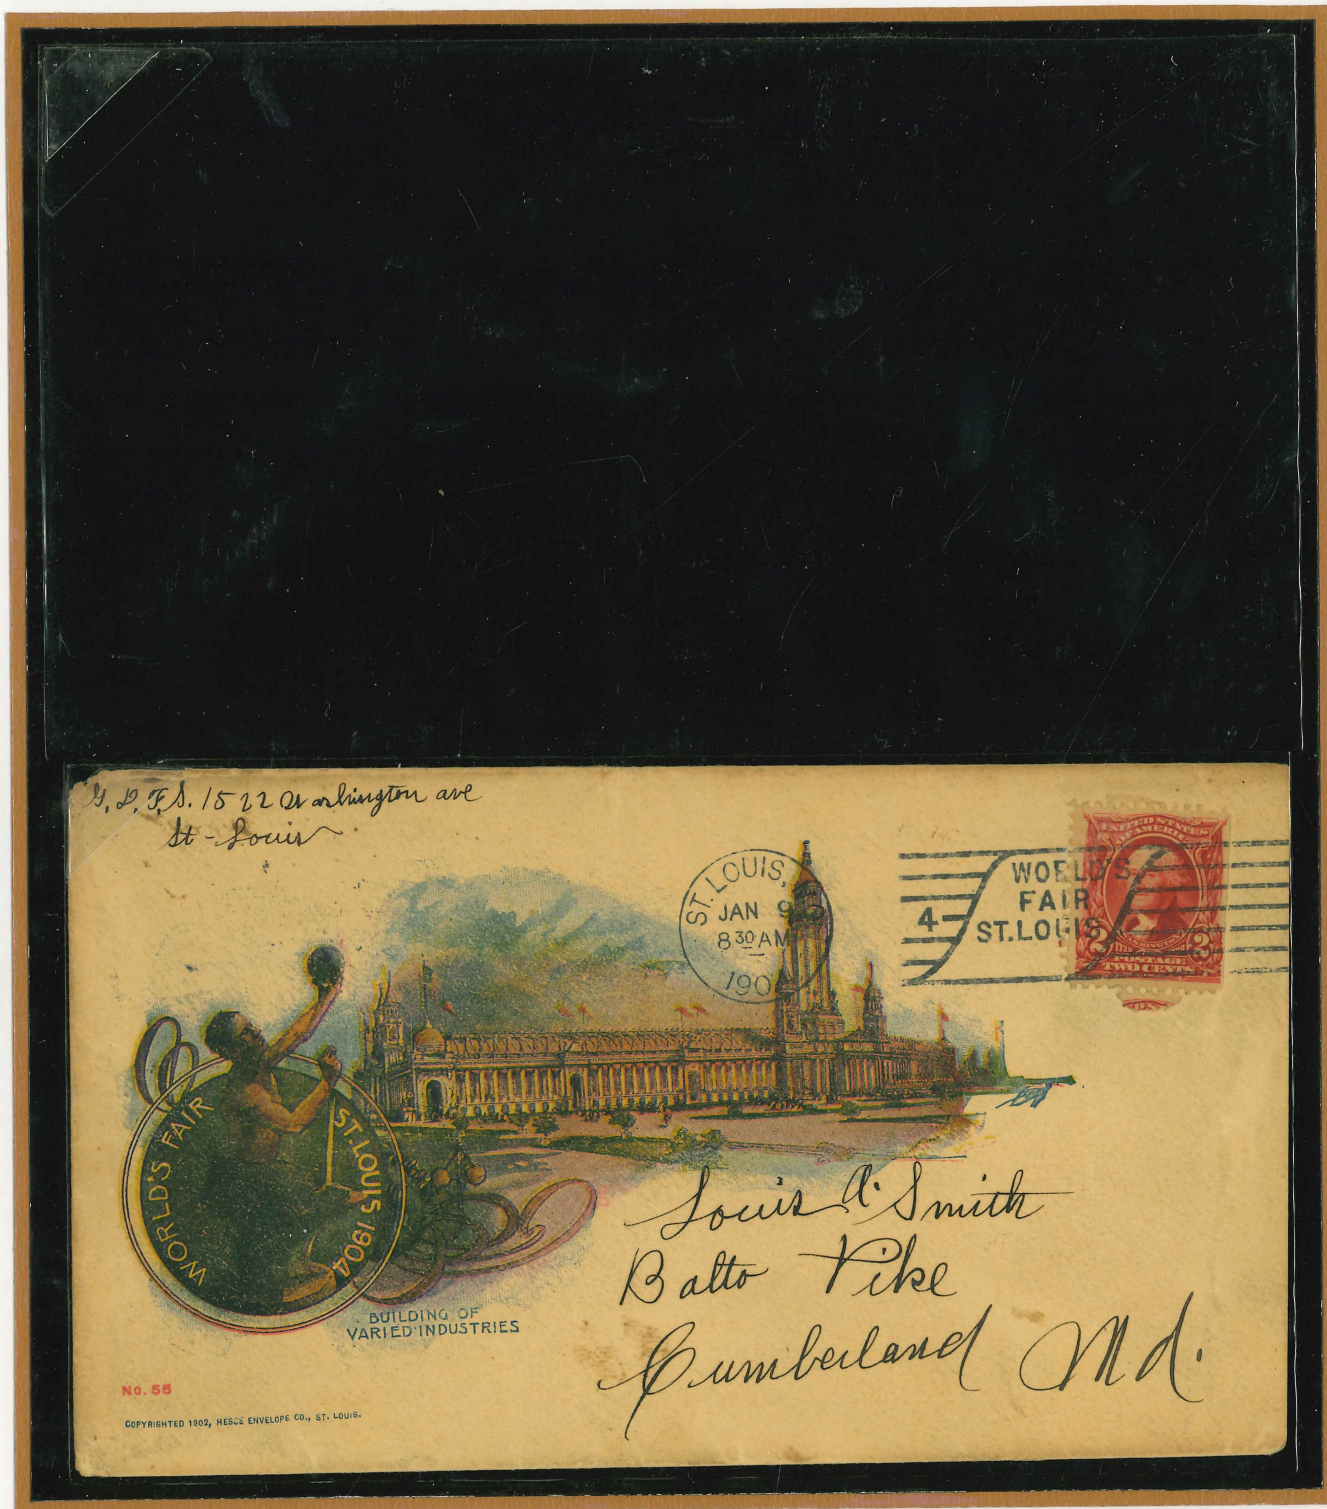 G. D. F. S. 1522 Washington ave
St-Louis
ST. LOUIS,
JAN 9
8 30 AM
190
4
WORLD'S
FAIR
ST. LOUIS
UNITED STATES
OF AMERICA
2 2
WASHINGTON
POSTAGE
TWO CENTS
WORLD'S FAIR
ST. LOUIS 1904
BUILDING OF
VARIED INDUSTRIES
Louis A. Smith
Balto Pike
Cumberland Md.
NO. 55
COPYRIGHTED 1902, HESSE ENVELOPE CO., ST. LOUIS.